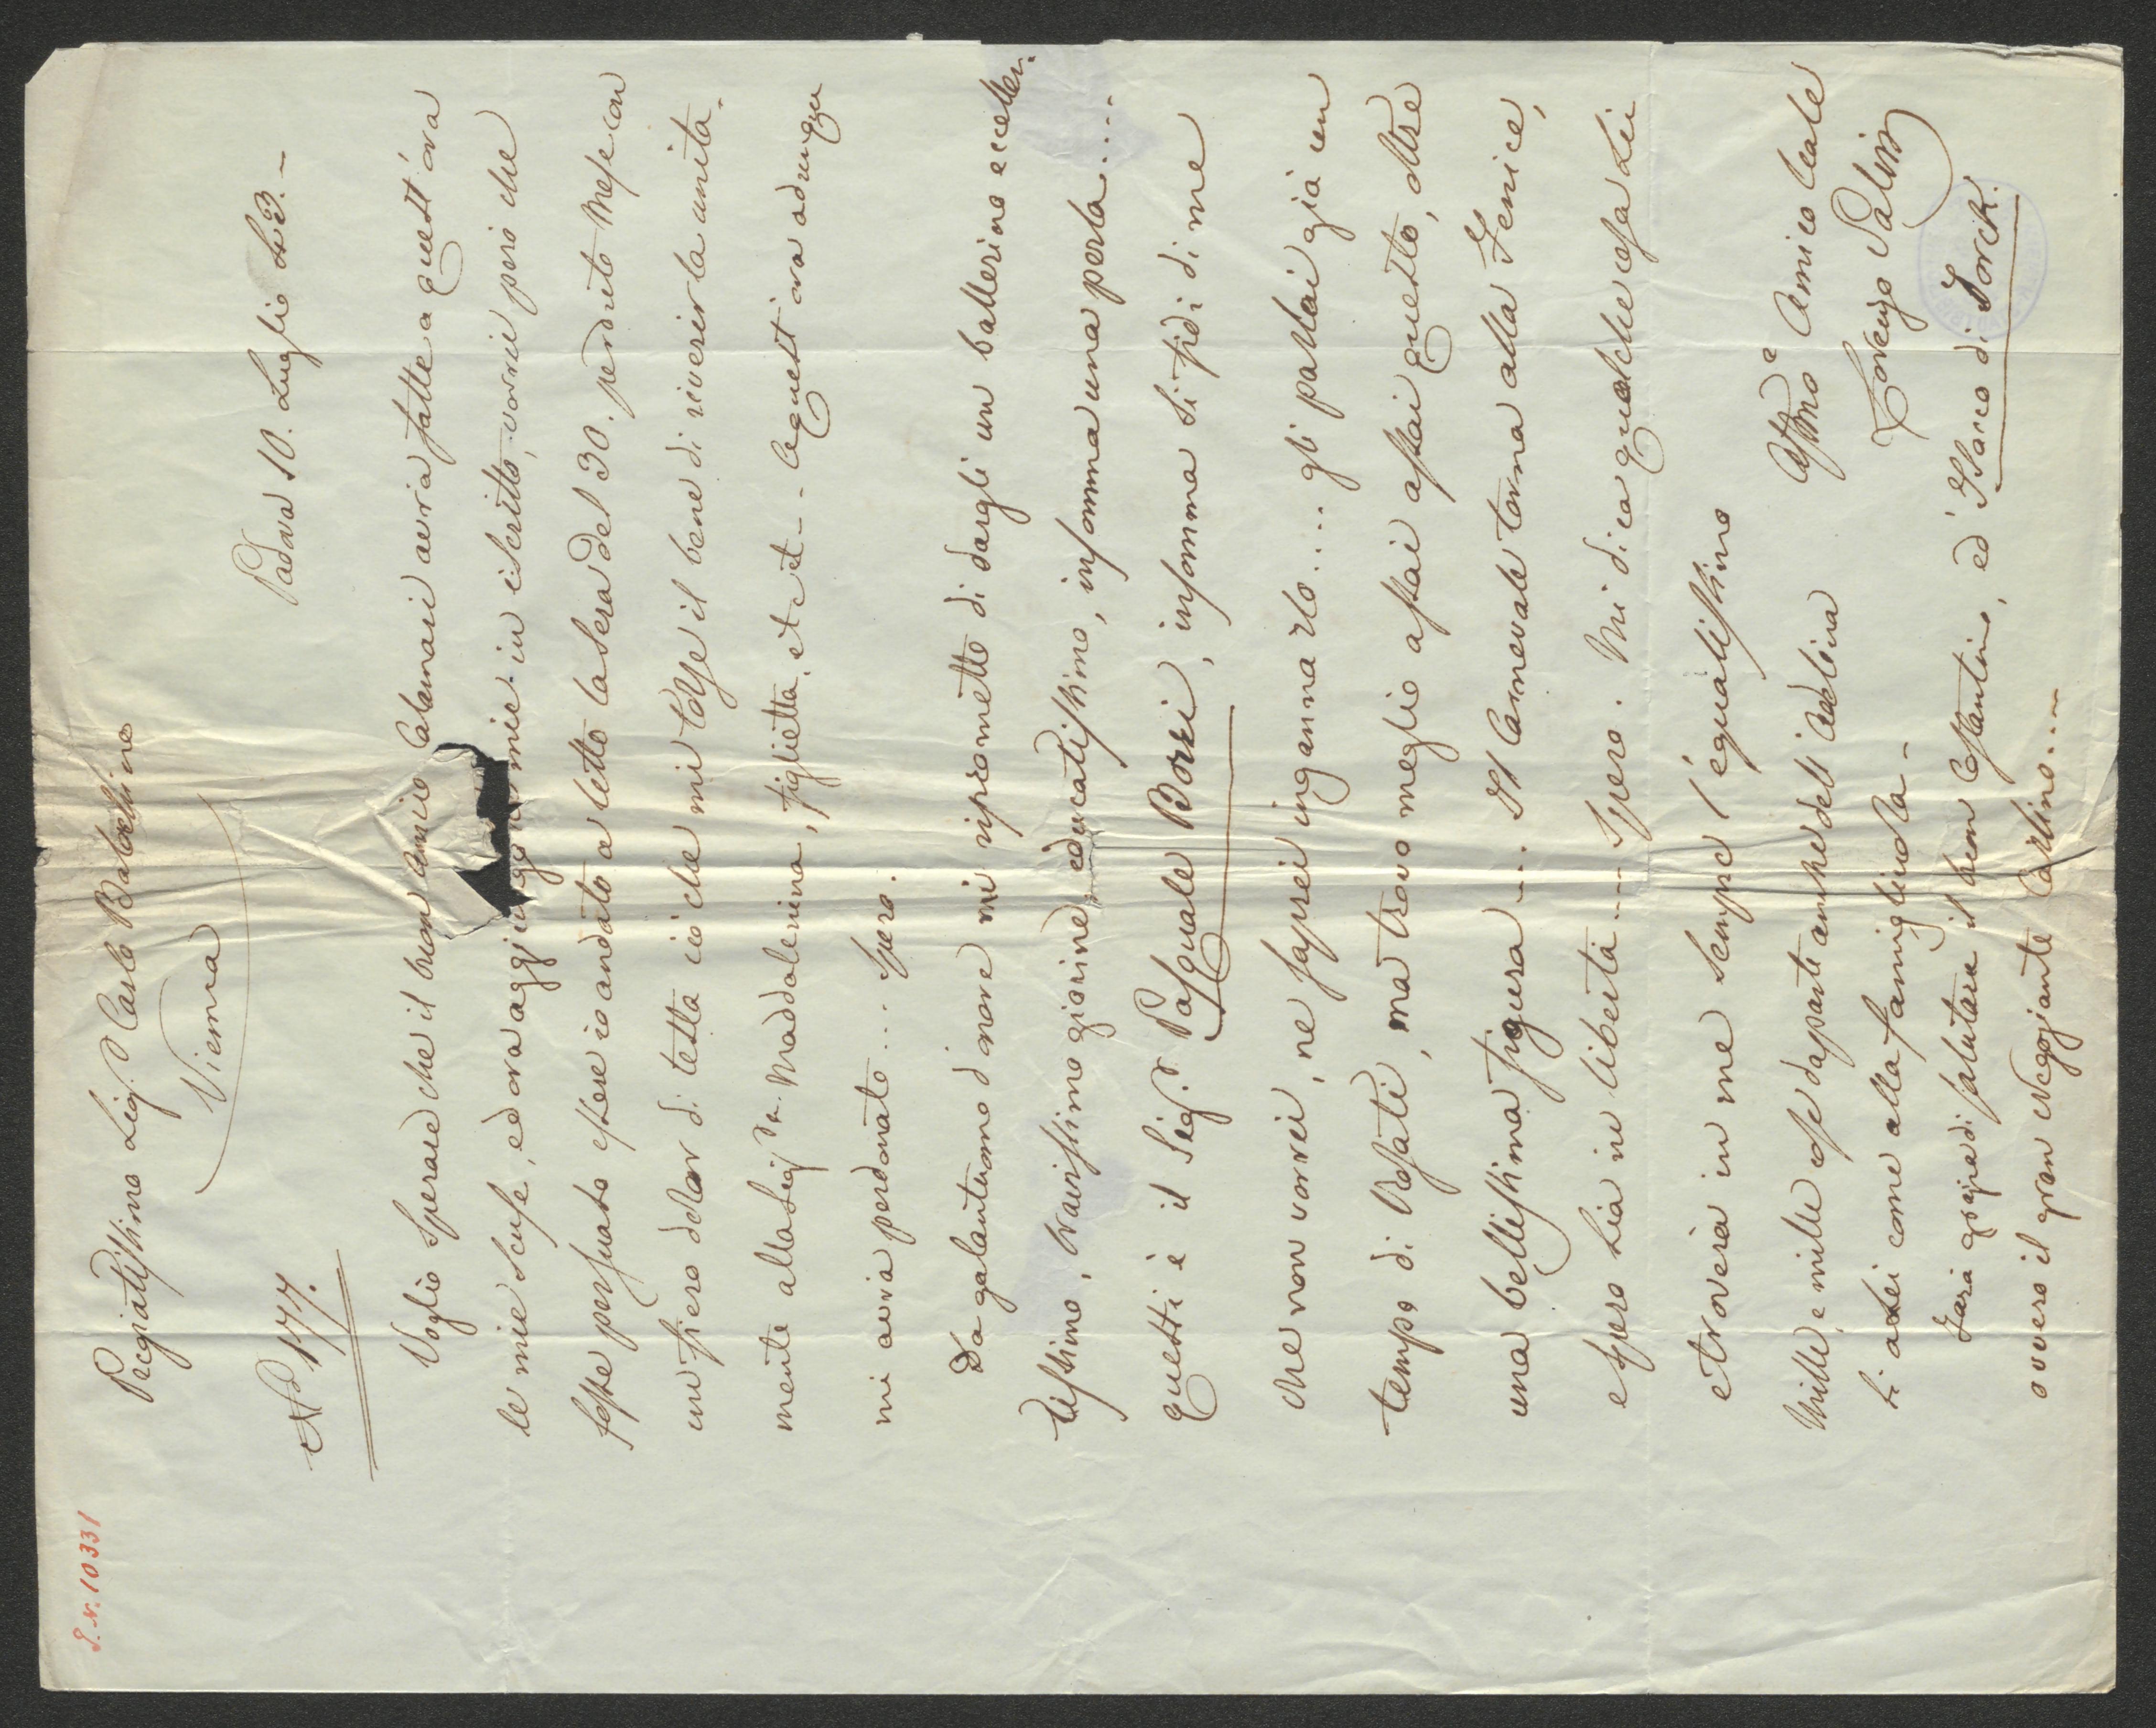 I.N. 10331
Preggiatissimo Sig.r Carlo Balochino
Vienna
No 177.
Padova 10. Luglio 43.-
Voglio sperare che il buon amico Calamari avrà fatte a quest'ora
le mie scuse, ed ora aggiungo le mie in iscritto, vorrei però che
fosse persuaso essere io andato a letto la sera del 30. perduto mese con
un fiero dolor di testa ciò che mi tolse il bene di riverirla unita-
mente alla Sig.ra Maddalenina, figlietta, et et - A quest'ora adunque
mi avrà perdonato... spero.
Da galantuomo d'onore mi riprometto di dargli un ballerino eccellen-
tissimo, bravissimo giovine educatissimo, insomma una perla....
questi è il Sig.r Pasquale Borri, insomma si fidi di me
che non vorrei, ne saprei ingannarlo.... gli parlai già un
tempo di Rosati, ma trovo meglio assai assai questo, oltre
una bellissima figura.... Il Carnevale torna alla Fenice,
e spero sia in libertà.... spero. Mi dica qualche cosa Lei
e troverà in me sempre l'egualissimo
Affmo e Amico leale
Lorenzo Salvi
Mille, e mille cose da parte anche dell'Adelina
si a Lei come alla famigliuola-
Farà grazia di salutare il buon Costantino, ed Isacco di Jorck.
ovvero il gran Negoziante Carlino....